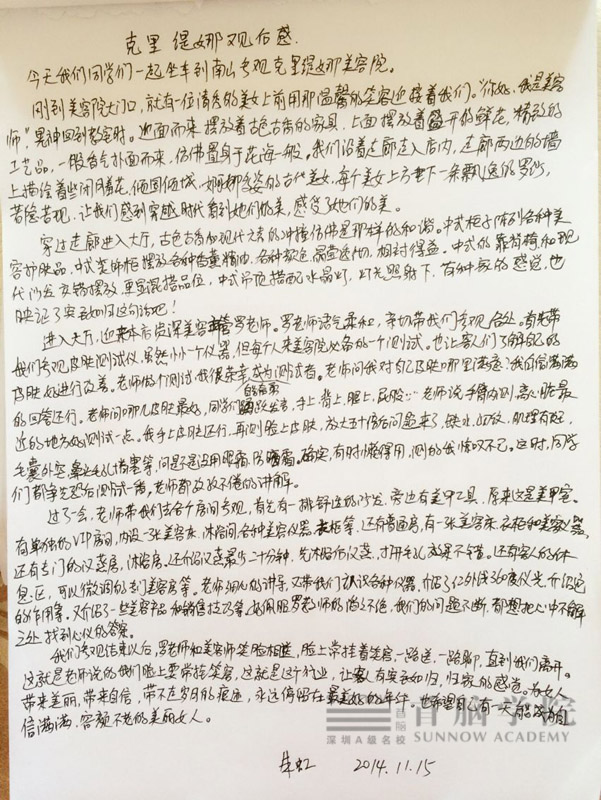 克里缇娜观后感
今天我们同学们一起坐车到南山参观克里缇娜美容院。
刚到美容院大门口，就有一位清秀的美女上前用那温馨的笑容迎接着我们。"你好，我是美容
师"晃神回到暂定时。迎面而来摆放着古色古香的家具，上面摆放着盛开的鲜花，精致的
工艺品，一股香气扑面而来，仿佛置身于花海一般。我们沿着走廊走入店内，走廊两边的墙
上描绘着些闭月羞花，倾国倾城，婀娜多姿的古代美女，每个美女上方垂下一条飘逸的罗纱，
若隐若现，让我们感到穿越时代看到她们的美，感受了她们的美。
穿过走廊进入大厅，古色古香和现代元素的冲撞仿佛是那样的和谐。中式柜子陈列各种美
容护肤品，中式梳妆柜摆放各种香薰精油，各种颜色晶莹透彻，相对得益。中式的靠背椅和现
代沙发交错摆放，更显混搭品位，中式吊顶搭配水晶灯，灯光照射下，有种家的感觉，也
映证了宾至如归这句话吧！
进入大厅，迎来本店资深美容主管罗老师。罗老师语气柔和，亲切带我们参观各处。首先带
我们参观皮肤测试仪，虽然小小一个仪器，但每个人来美容院必备的一个测试。也让客人们了解自己的
皮肤好进行改善。老师做个测试，我很荣幸成为测试者。老师问我对自己皮肤哪里满意？我自信满满
的回答还行。老师问哪儿皮肤最好，同学们踊跃发言，手上、背上、腿上、屁股…老师说手臂内侧，离心脏最
近的地方好测试一点。我手上皮肤还行，再测脸上皮肤，放大五十倍后问题来了，缺水，凹纹，肌理有好，
毛囊外突，鼻头毛孔堵塞等，问是不是没用眼霜，防晒霜。确定，有时懒得用，测的我惊叹不已。这时，同学
们都争先恐后测试一番，老师都孜孜不倦的讲解。
过了一会，老师带我们去各个房间参观，首先有一排舒适的沙发，旁边有美甲工具，原来这是美甲室。
有单独的VIP房间，内设一张美容床，沐浴间，各种美容仪器，衣柜等，还有普通房，有一张美容床，衣柜和美容仪器，
还有专门的汉蒸房，沐浴房。还介绍汉蒸最少二十分钟，先沐浴后汉蒸，打开毛孔效果不错。还有客人的休
息区，可以微调的专门美容房等。老师细心的讲导，又带我们认识各种仪器，介绍了红外线360度仪光，介绍它
的作用等。又介绍了一些美容产品和销售技巧等，好佩服罗老师的滔滔不绝，我们的问题不断，都想把心中不解
之处，找到心仪的答案。
我们参观结束以后，罗老师和美容师笑脸相送，脸上常挂着笑容，一路送，一路聊，直到我们离开。
这就是老师说的我们脸上要常挂笑容，这就是这个行业，让客人有宾至如归，归家的感觉。为女人
带来美丽，带来自信，带不走岁月的痕迹，永远停留在最美好的年华。也希望自己有一天能成为自
信满满，容颜不老的美丽女人。
朱虹 2014.11.15
首脑学院
深圳A级名校 SUNNOW ACADEMY